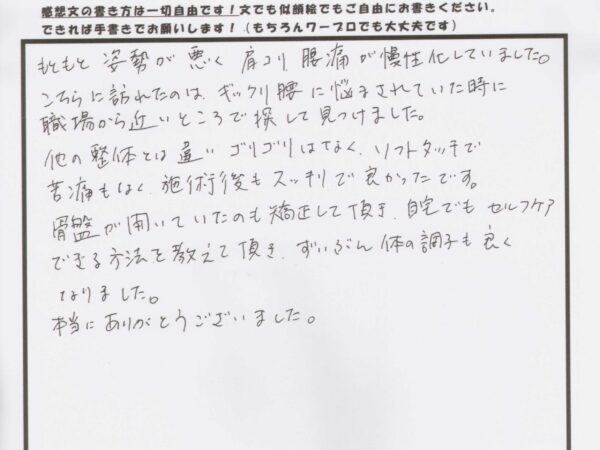 感想文の書き方は一切自由です！文でも似顔絵でもご自由にお書きください。
できれば手書きでお願いします！（もちろんワープロでも大丈夫です）
もともと 姿勢が 悪く 肩コリ 腰痛が慢性化していました。
こちらに訪れたのは、ギックリ腰に悩まされていた時に
職場から近いところで探して見つけました。
他の整体とは違い ゴリゴリはなく、ソフトタッチで
苦痛もなく、施術後もスッキリで良かったです。
骨盤が開いていたのも矯正して頂き、自宅でもセルフケア
できる方法を教えて頂き、ずいぶん体の調子も良く
なりました。
本当にありがとうございました。